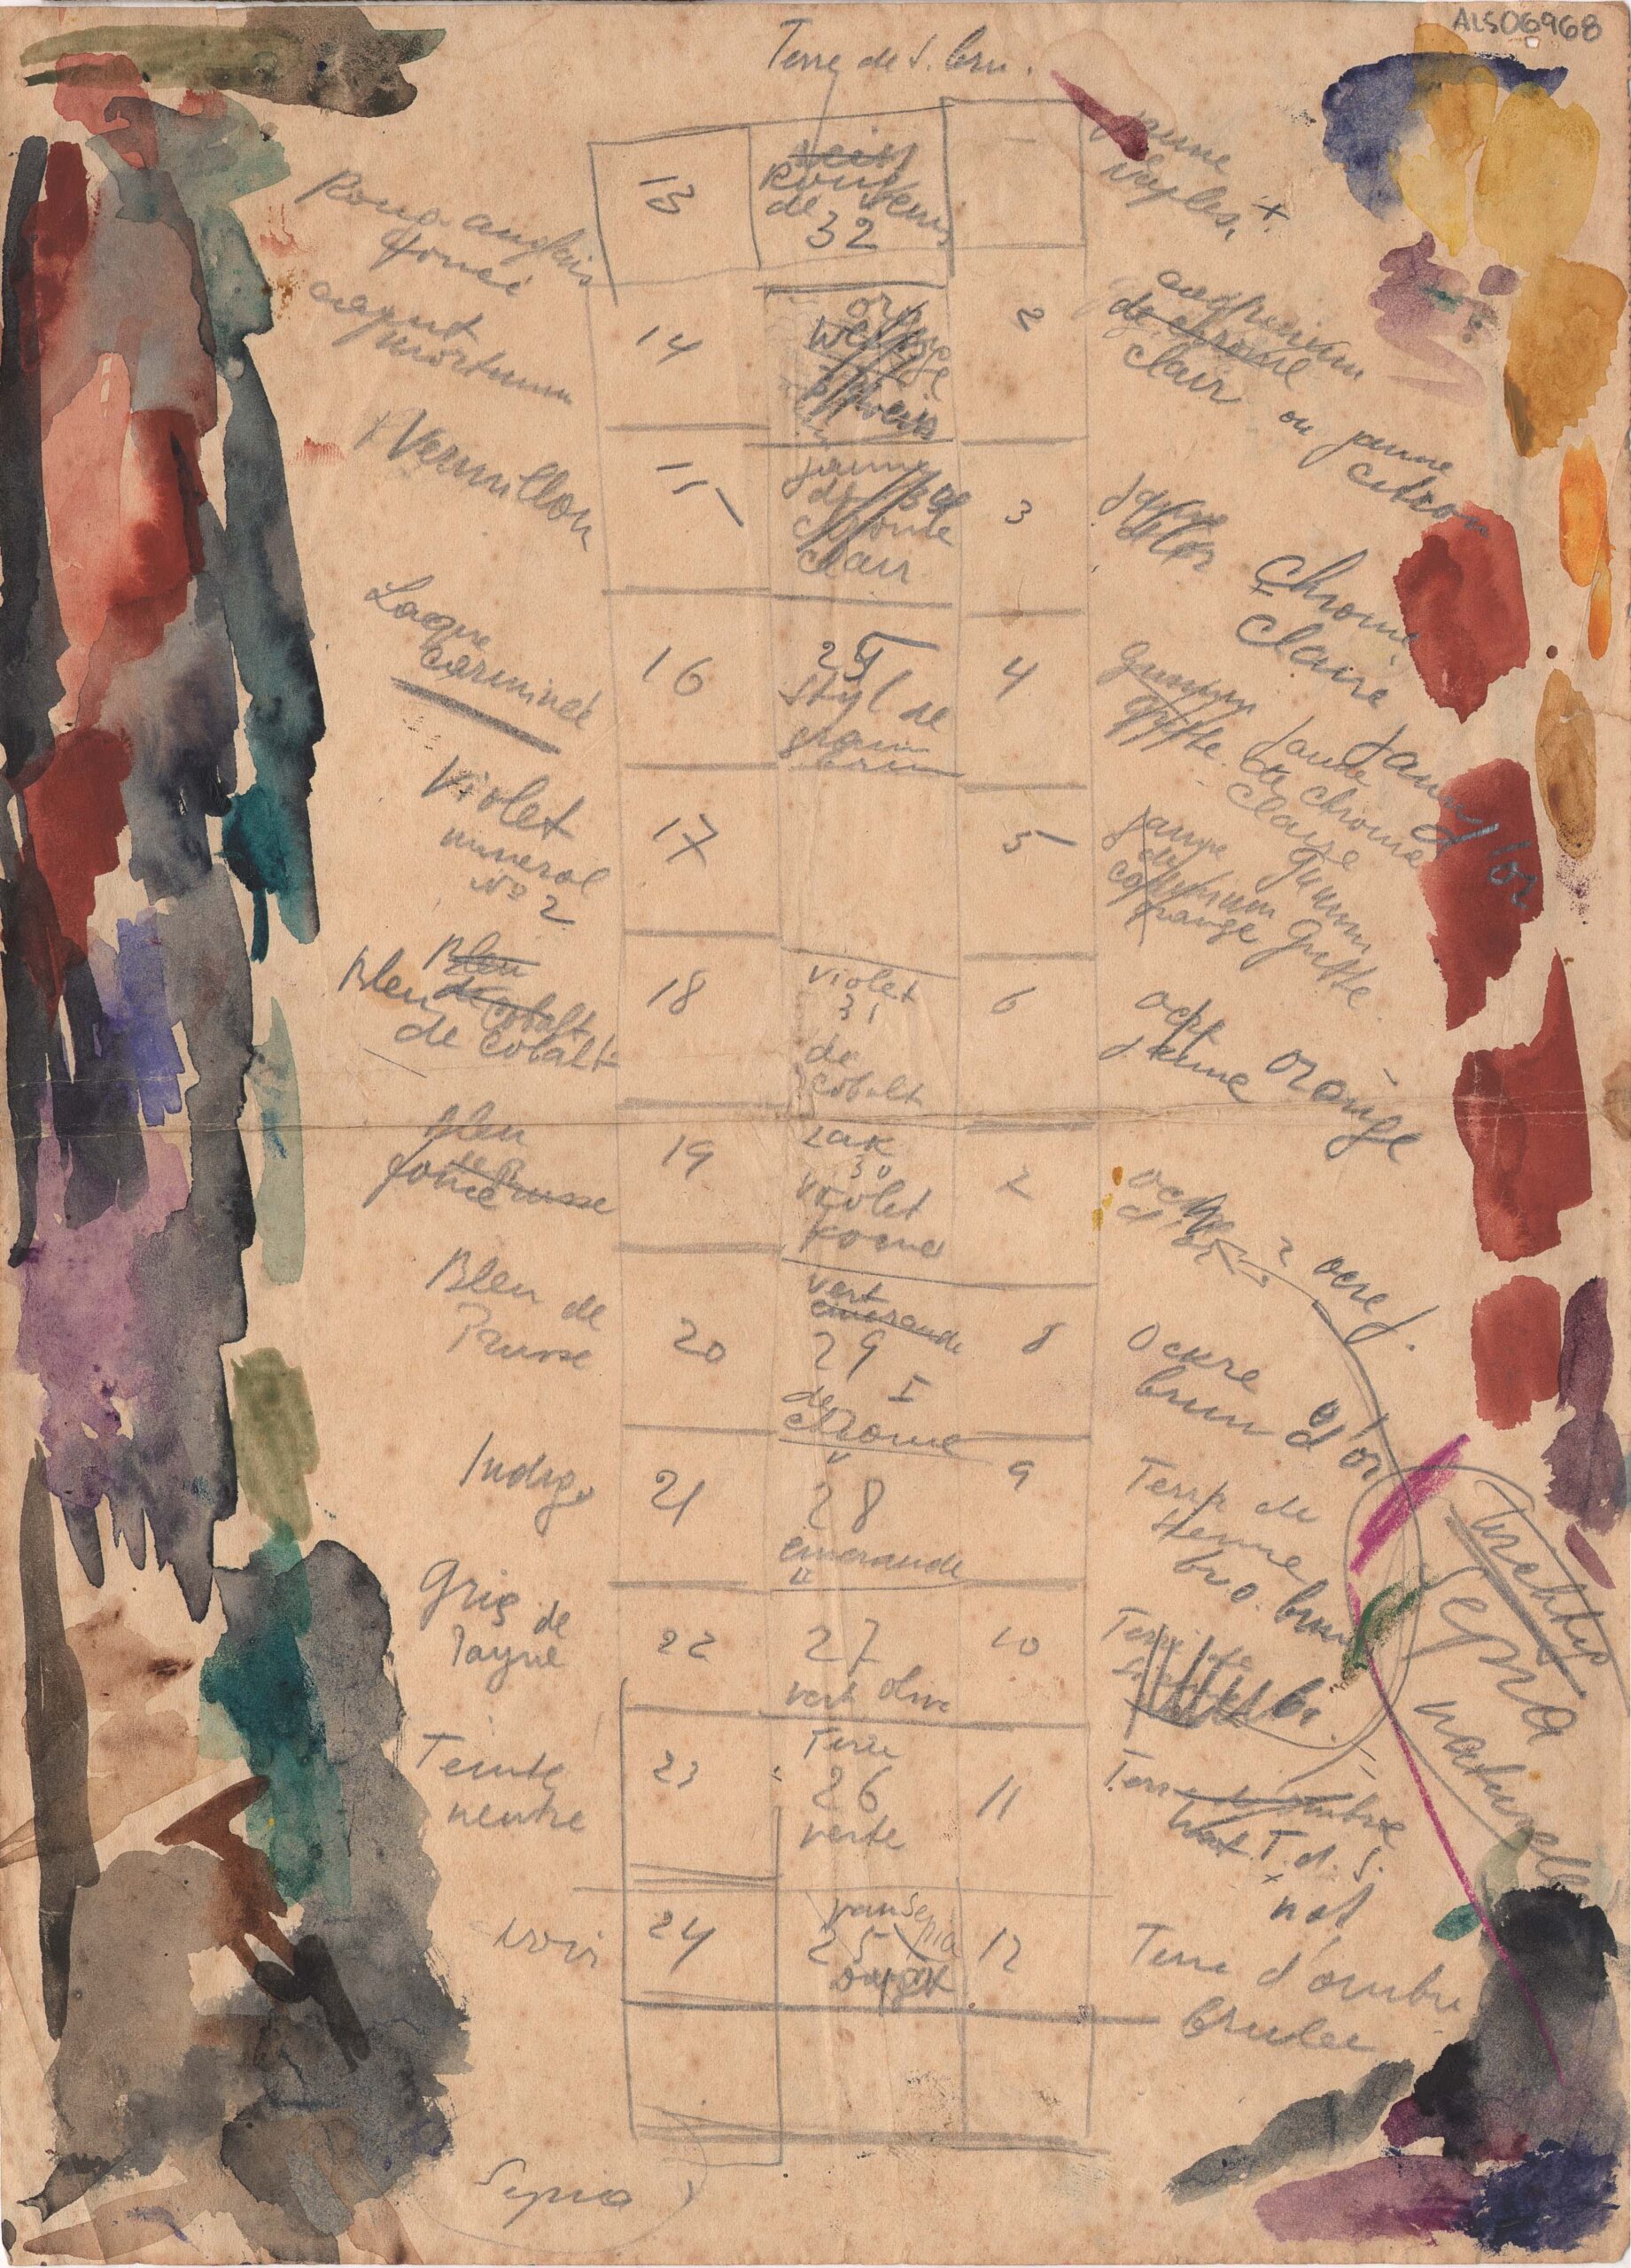 ALS06968
Terre de S. bru.
Roug anglais
foncé
caput
mortuum
Vermillon
Laque
carminée
Violet
mineral
No 2
Bleu
de cobalt
Bleu
de cobalt
Bleu
foncé
Bleu de
Prusse
Indigo
Gris de
Payne
Teinte
neutre
noir
Sepia
13
14
15
16
17
18
19
20
21
22
23
24
de
32
jaune
de
chrome
clair
25
styl de
grain
brun
violet
31
de
cobalt
Lak
30
violet
vert
emeraude
29
I
de
chrome
"
28
emeraude
"
27
vert olive
Terre
26
verte
Sepia
25
-
2
3
4
5
6
8
9
10
11
12
jaune
Naples,
x
cadmium
de chrome
clair ou jaune
citron
jaune
d'or
Chrome
Claire
Gummi
Gutte
jaune
de chrome
claire
Jaune
d'or
Gummi
Gutte
jaune
de
cadmium
orange
ocre
jaune
orange
ocre
d'or
? ocre j.
Ockre
brun
d'or
Terre de
Sienne
brun
Terre de
br.
Sepia
naturelle
Terre d'ombre
nat T. d. S.
x
nat
Terre d'ombre
brulee